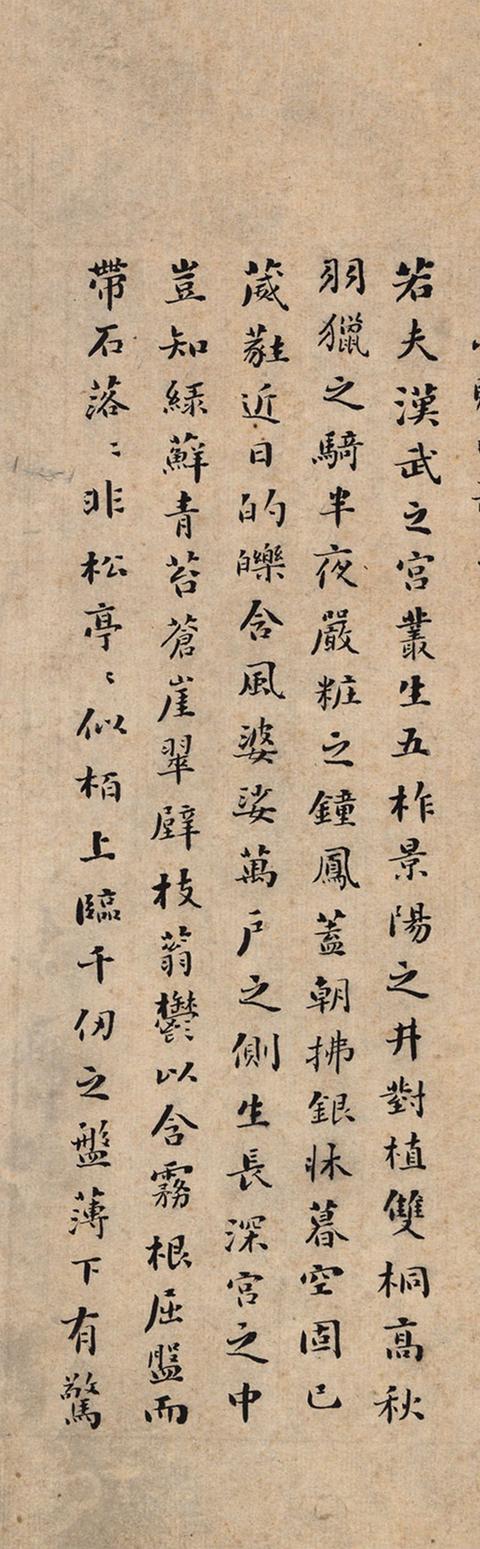 若夫漢武之宮叢生五柞景陽之井對植雙桐高秋
羽獵之騎半夜嚴粧之鐘鳳蓋朝拂銀牀暮空固已
葳蕤近日的皪含風婆娑萬戶之側生長深宮之中
豈知綠蘚青苔蒼崖翠壁枝蓊鬱以含霧根屈盤而
帶石落〻非松亭〻似栢上臨千仞之盤薄下有驚